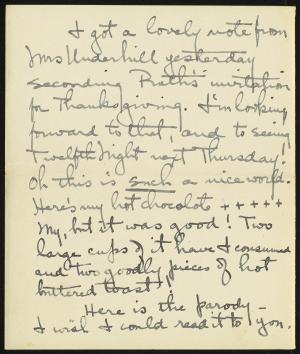 I got a lovely note from
Mrs Underhill yesterday
seconding Ruth's invitation
for Thanksgiving. I'm looking
forward to that, and to seeing
Twelfth Night next Thursday!
Oh this is such a nice world.
Here's my hot chocolate + + + + +
My, but it was good! Two
large cups of it have I consumed
and two goodly pieces of hot
buttered toast!
Here is the parody –
I wish I could read it to you.